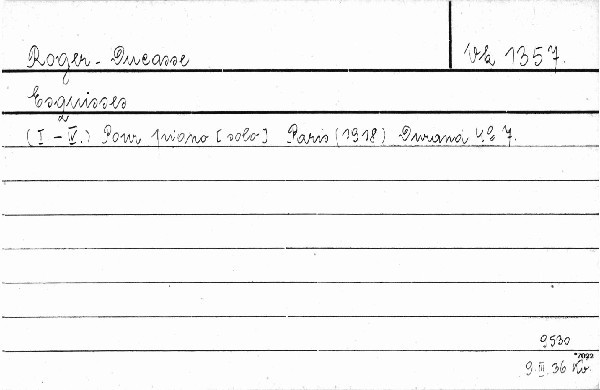 Roger-Ducasse Vk 1357.
Esquisses
(I-V.) Pour piano [solo] Paris (1918) Durand 4° 7.
9530
9.III.36 Kv.